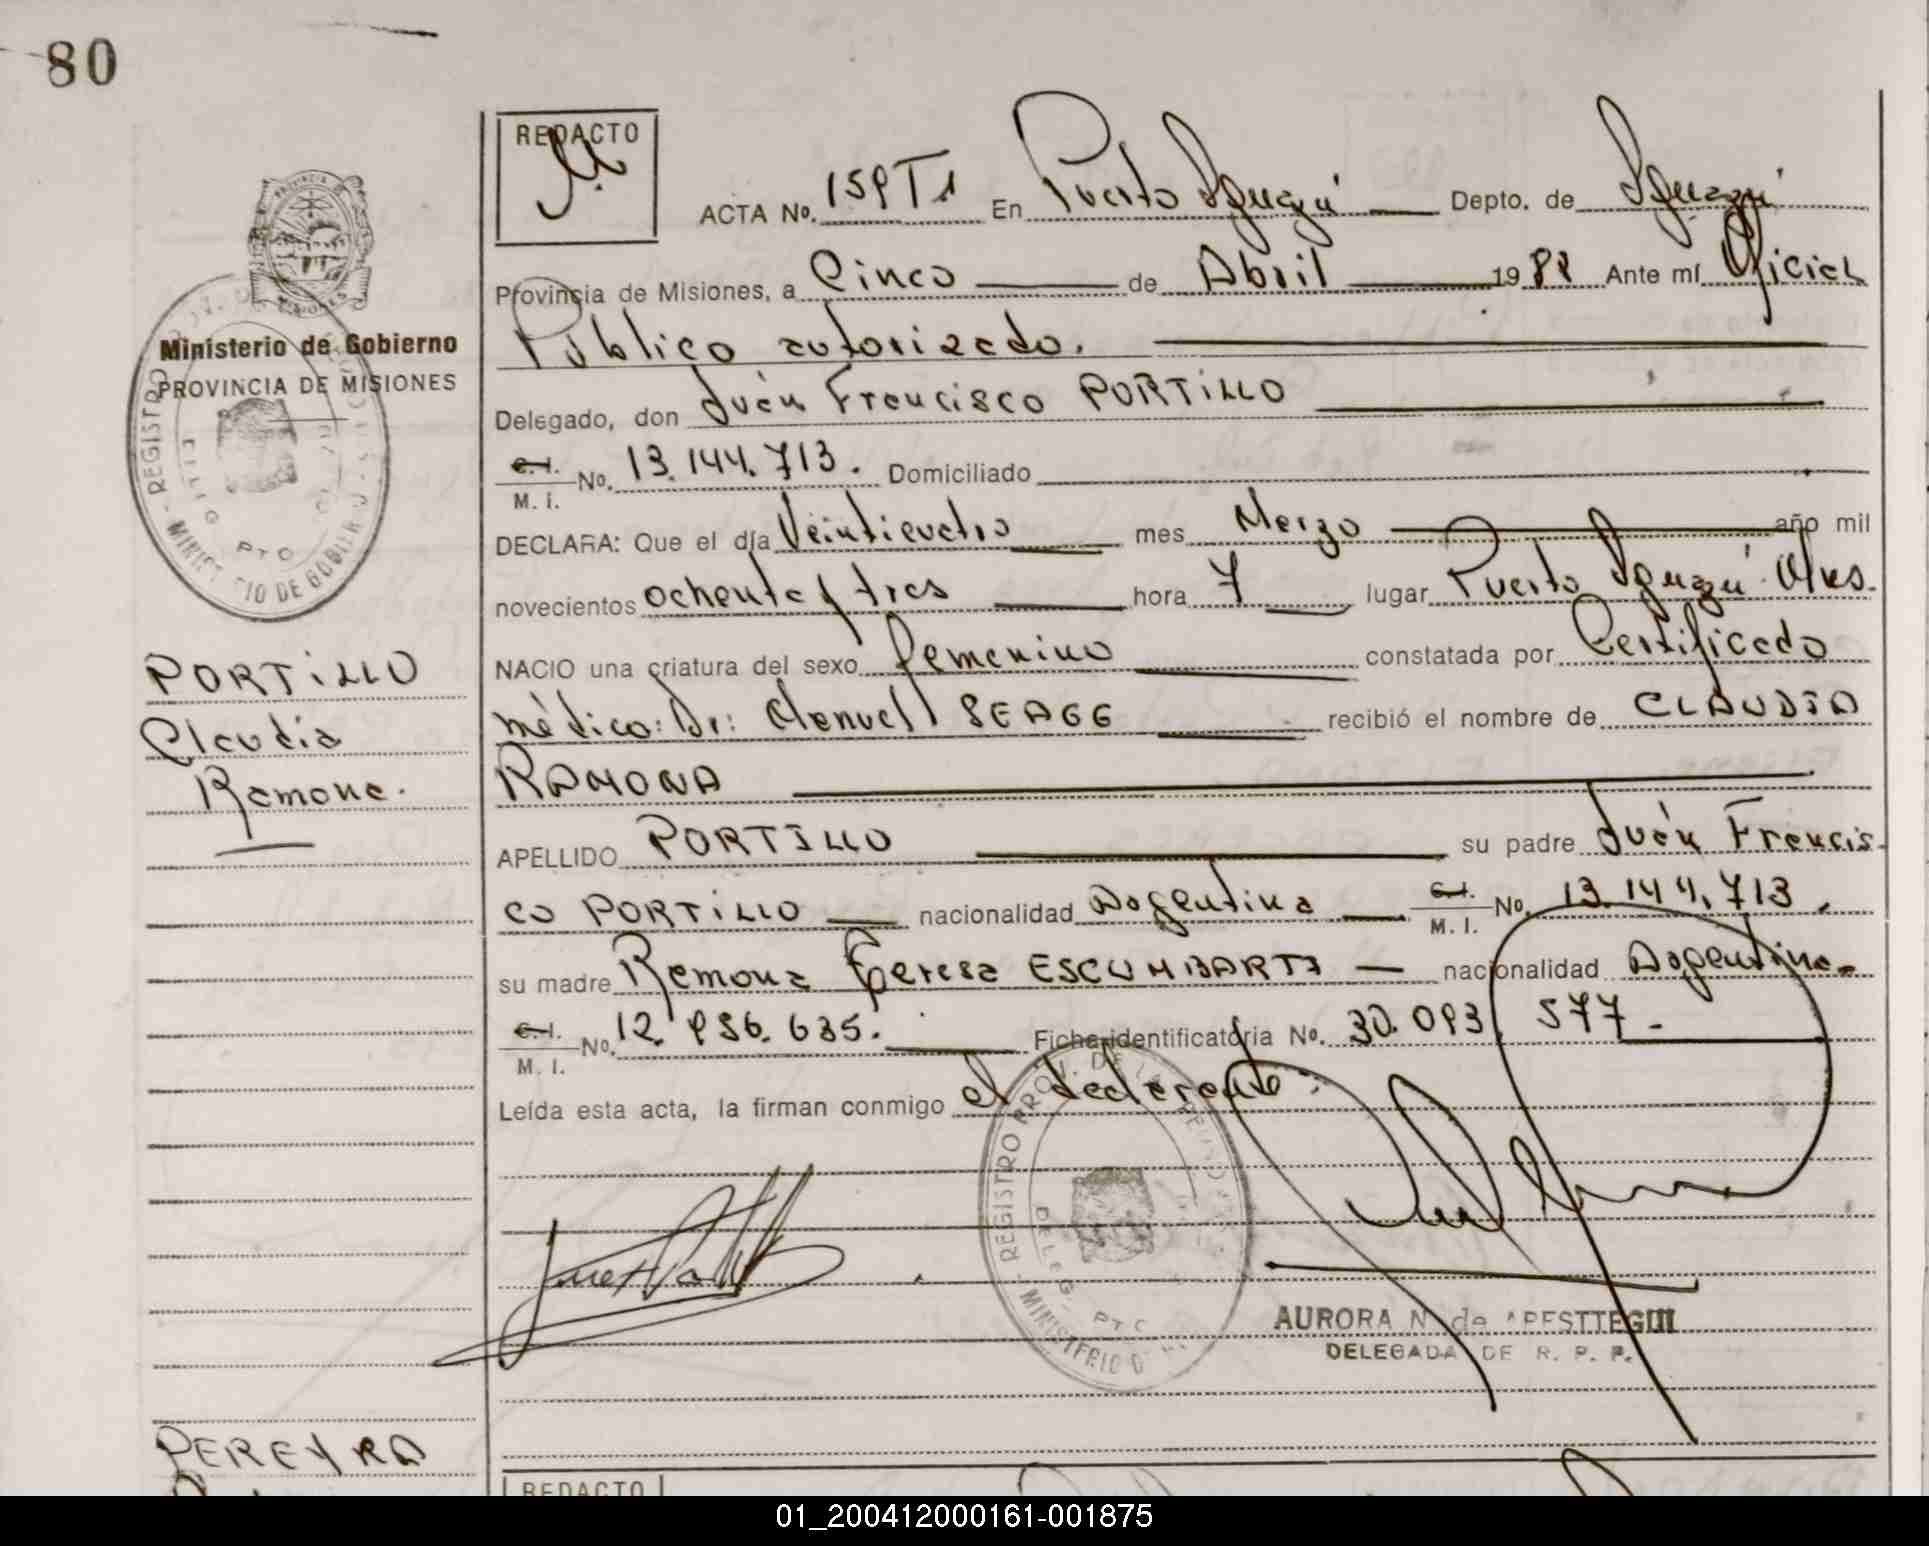 80
REDACTO
ACTA No. 159 T1 En Puerto Iguazú Depto. de Iguazú
Provincia de Misiones, a Cinco de Abril 1988 Ante mí Oficial
Ministerio de Gobierno
PROVINCIA DE MISIONES
Público autorizado.
Delegado, don Juan Francisco PORTILLO
C. I. No. 13.144.713. Domiciliado
M. I.
DECLARA: Que el día Veinticuatro mes Marzo año mil
novecientos ochenta y tres hora 7 lugar Puerto Iguazú Mnes.
NACIO una criatura del sexo femenino constatada por Certificado
médico: Dr: Manuel SEAGG recibió el nombre de CLAUDIA
RAMONA
PORTILLO
Claudia
Ramona.
APELLIDO PORTILLO su padre Juan Francis-
co PORTILLO nacionalidad Argentina C. I. No. 13.144.713.
M. I.
su madre Ramona Teresa nacionalidad Argentina.
C. I. No. 12. 635. Ficha identificatoria No. 30.093.577.-
M. I.
Leída esta acta, la firman conmigo el declarante.
REGISTRO
MINISTERIO DE GOBIERNO
AURORA N. de
DELEGADA DE R. P. P.
PEREYRA
REDACTO
01_200412000161-001875